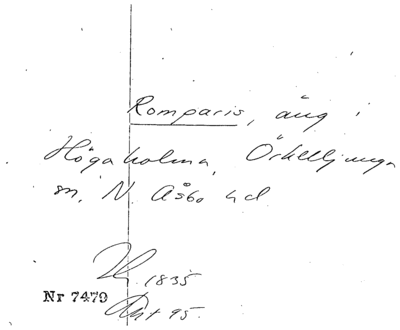 Romparis, äng i
Högaholma, Örkelljunga
sn, N. Åsbo hd
1835
Nr 7479
Akt 95.